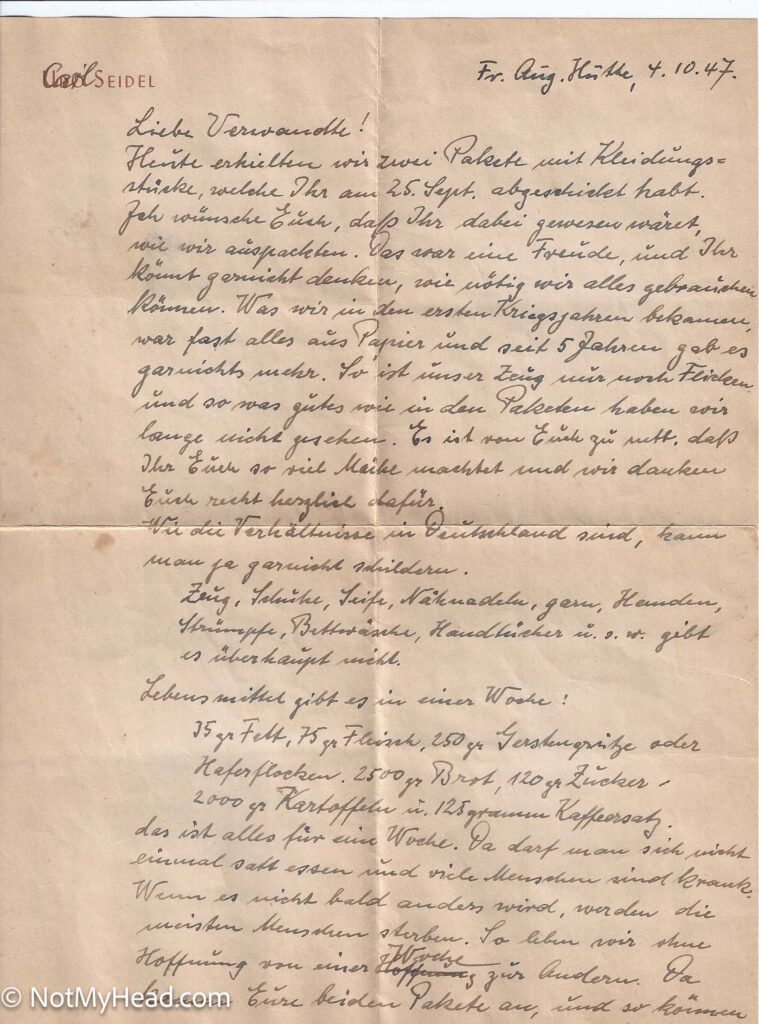 Carl SEIDEL
Fr. Aug. Hütte, 4.10.47.
Liebe Verwandte!
Heute erhielten wir zwei Pakete mit Kleidungs=
stücke, welche Ihr am 25. Sept. abgeschickt habt.
Ich wünsche Euch, daß Ihr dabei gewesen wäret,
wie wir auspackten. Das war eine Freude, und Ihr
könnt garnicht denken, wie nötig wir alles gebrauchen
können. Was wir in den ersten Kriegsjahren bekamen,
war fast alles aus Papier und seit 5 Jahren gab es
garnichts mehr. So ist unser Zeug nur noch Flicken
und so was gutes wie in den Paketen haben wir
lange nicht gesehen. Es ist von Euch zu nett, daß
Ihr Euch so viel Mühe machtet und wir danken
Euch recht herzlich dafür.
Wie die Verhältnisse in Deutschland sind, kann
man ja garnicht schildern.
Zeug, Schuhe, Seife, Nähnadeln, garn, Hemden,
Strümpfe, Bettwäsche, Handtücher u. s. w. gibt
es überhaupt nicht.
Lebensmittel gibt es in einer Woche!
35 gr Fett, 75 gr Fleisch, 250 gr Gerstengrütze oder
Haferflocken. 2500 gr Brot, 120 gr Zucker,
2000 gr Kartoffeln u. 125 gramm Kaffeersatz.
das ist alles für eine Woche. Da darf man sich nicht
einmal satt essen und viele Menschen sind krank.
Wenn es nicht bald anders wird, werden die
meisten Menschen sterben. So lebn wir ohne
Hoffnung von einer Woche zur Andern. Da
kamen Eure beiden Pakete an, und so können
© NotMyHead.com